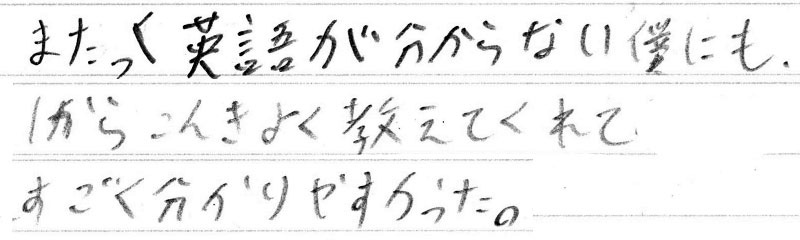 まったく英語が分からない僕にも、
1からこんきよく教えてくれて
すごく分かりやすかった。